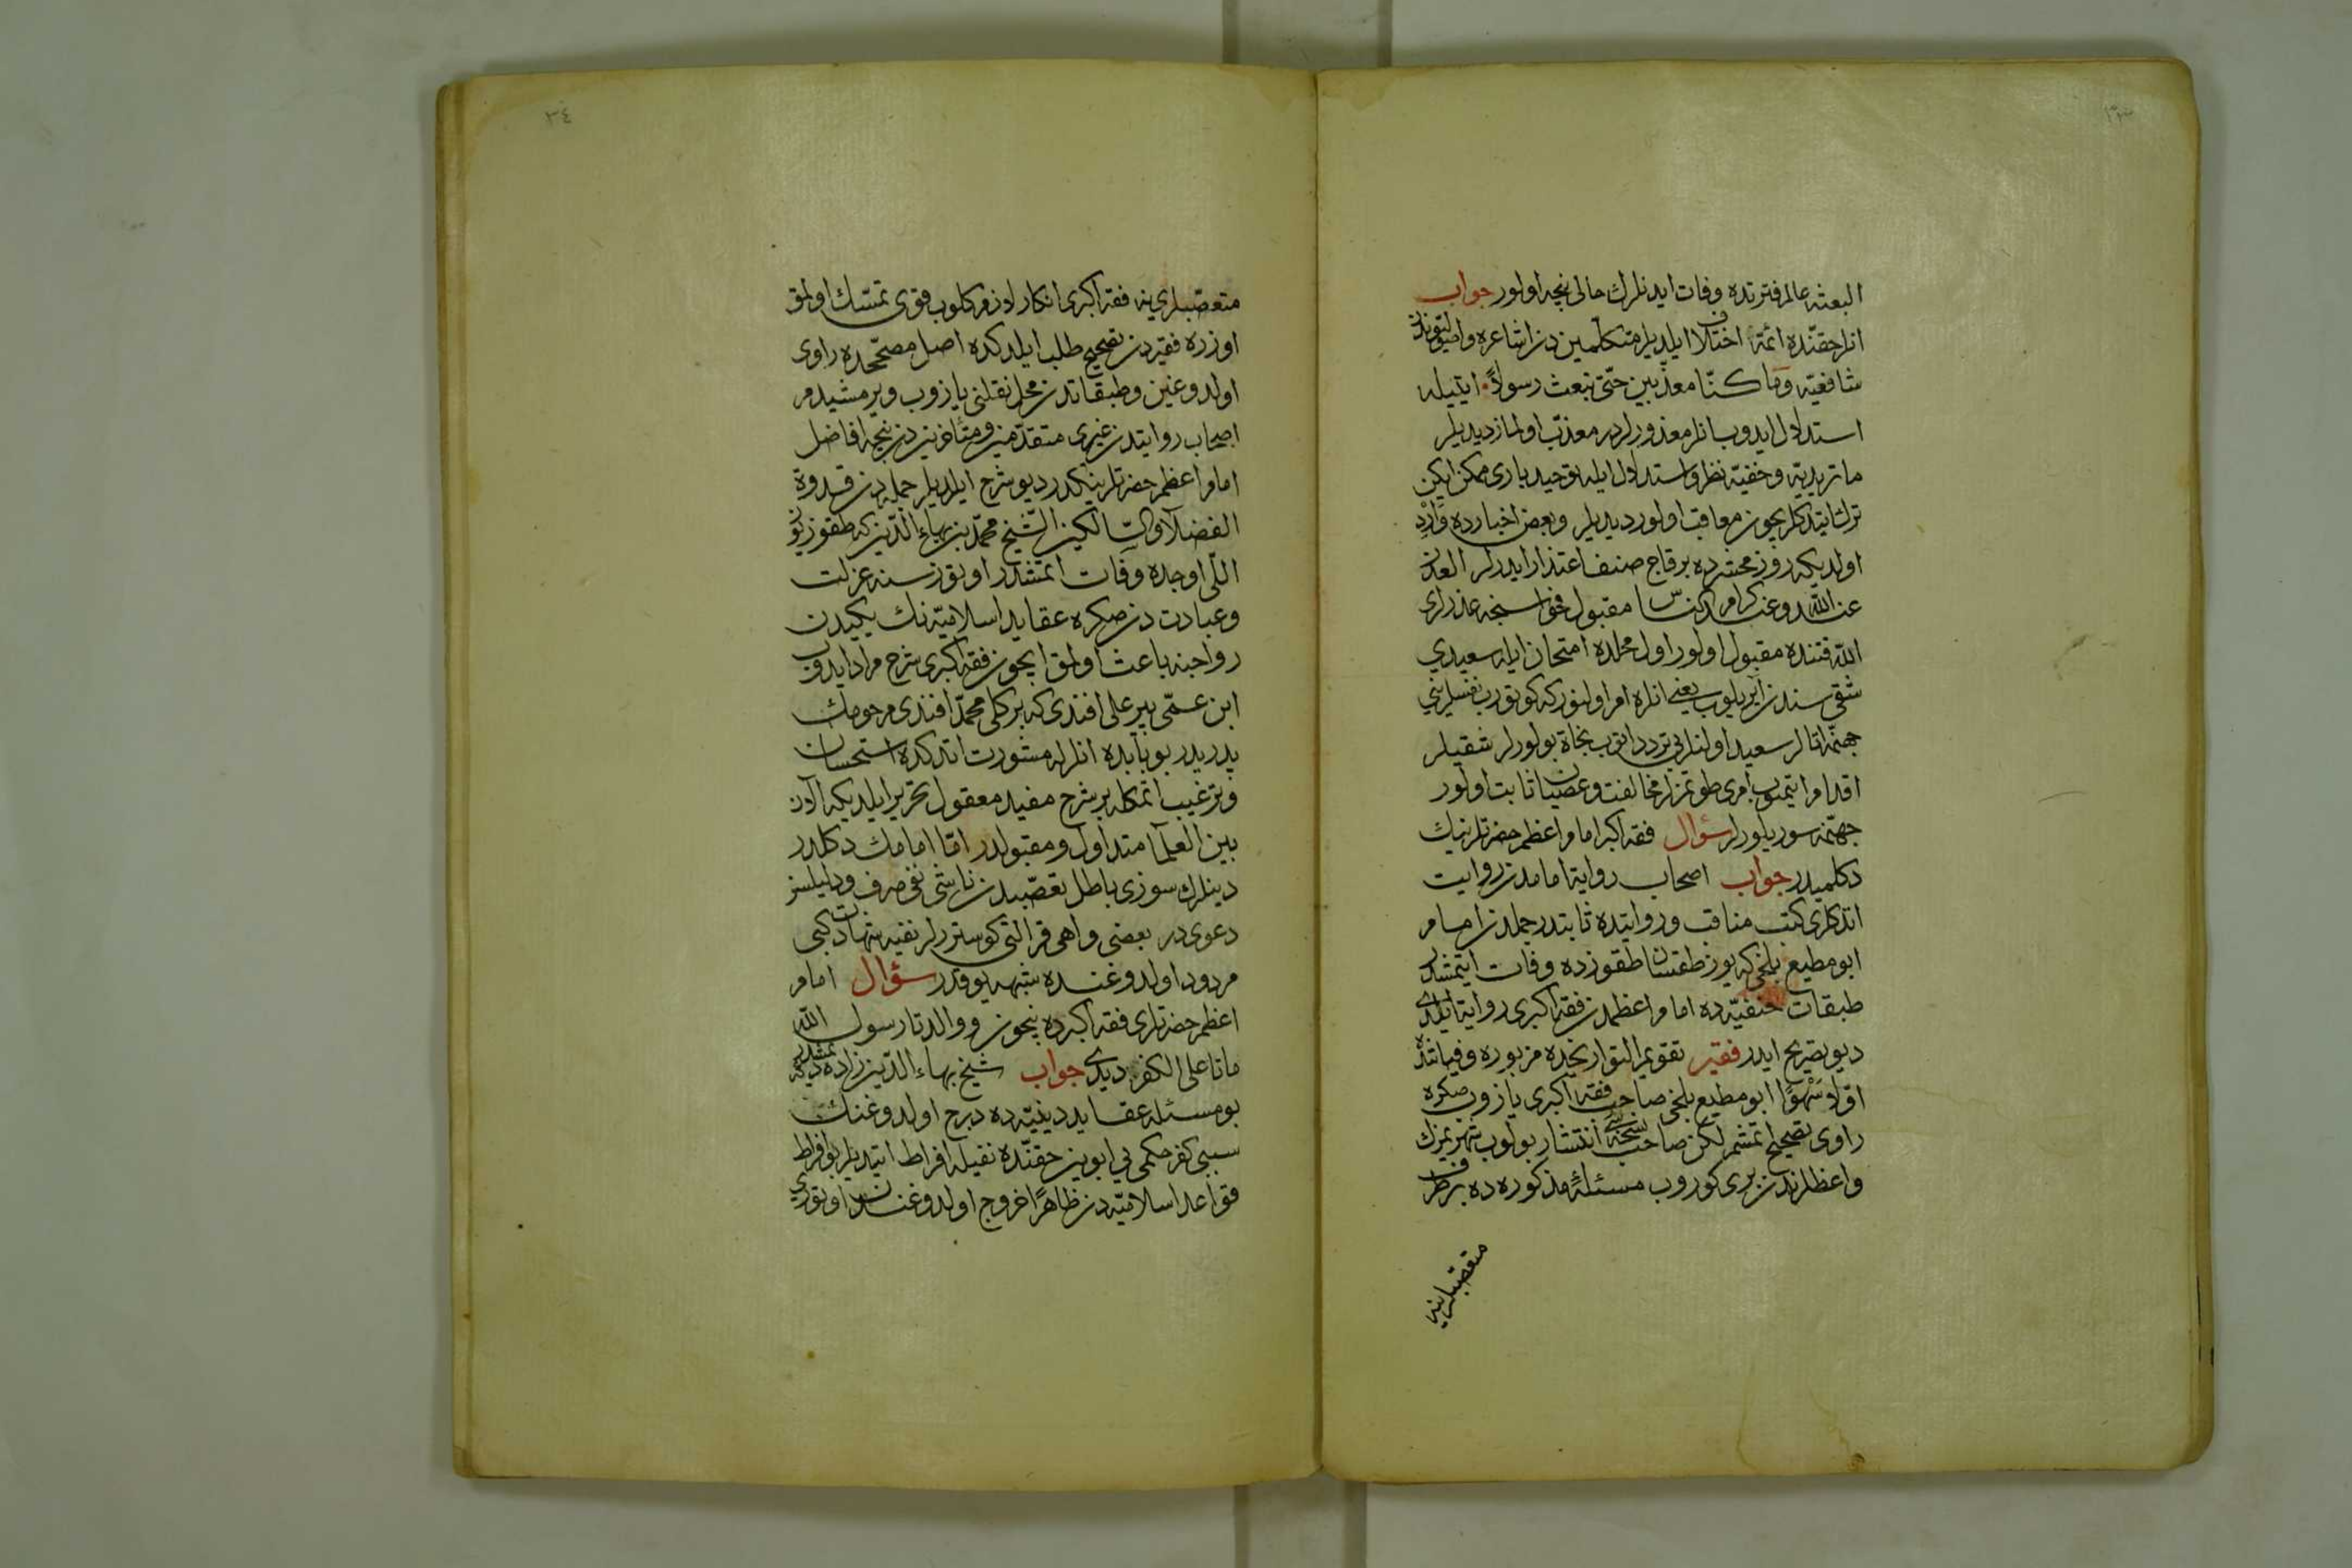 ٣٣
البعثه عالم فترتده وفات ایدنلرك حالی نیجه اولور جواب
انلر حقنده ائمّه اختلاف ایلدیلر متکلّمین دن اشاعره واصولیوندن
شافعیّه وَما كنّا معذّبین حتّی نبعث رسولاً ایتیله
استدلال ایدوب انلر معذورلردر معذّب اولمازلر دیدیلر
ماتریدیّه وحنفیّه نظر واستدلال ایله توحید باری ممکن ایکن
ترك ایتدکلریچون معاقب اولور دیدیلر وبعض اخبارده وَارِد
اولدیکه روز محشرده بر قاچ صنف اعتذار ایدرلر العذر
عند الله وعند کرام الناس مقبول فحواسنجه عذرلری
الله قتنده مقبول اولور اول محلده امتحان ایله سعیدی
شقی سندن آیریلوب یعنی انلره امر اولنور که کوتورب نفسلریني
جهنّمه اتالر سعید اولنلر بی تردد اتوب نجاة بولورلر شقیلر
اقدام ایتمیوب امری طوتمزلر مخالفت وعصیان ثابت اولور
جهنّمه سوریلورلر سؤال فقه اکبر امام اعظم حضرتلرینك
دکلمیدر جواب اصحاب روایة امامدن روایت
اتدکلری کتب مناقب وروایتده ثابتدر جمله دن امام
ابو مطیع بلخی که یوز طقسان طقوزده وفات ایتمشدر
طبقات حنفیّه ده امام اعظمدن فقه اکبری روایة ایلدی
دیو تصریح ایدر فقیر تقویم التواریخده مزبوره وفیاتنده
اوّلا سَهْوًا ابو مطیع بلخی صاحب فقه اکبری یازوب صکره
راوی تصحیح اتمشم لکن صاحب نسخه سی انتشار بولوب شهریمزك
واعظلرندن بری کوروب مسئلهٔ مذکوره ده برطرف
متعصّبلرینه
٣٤
متعصّبلرینه فقه اکبری انکار لازم کلوب قوی تمسّك اولمق
اوزره فقیردن تصحیح طلب ایلدکده اصل مصحّحده راوی
اولدوغین وطبقاتدن محل نقلنی یازوب ویرمشیدم
اصحاب روایتدن غیری متقدّمین ومتأخرین دن نیجه افاضل
امام اعظم حضرتلرینکدر دیو شرح ایلدیلر جمله دن قدوة
الفضلاء والسّالکین الشّیخ محمّد بن بهاء الدّین که طقوز یوز
اللّی اوچده وفات اتمشدر اوتوز سنه عزلت
وعبادت دن صکره عقاید اسلامیّه نك یکیدن
رواجنه باعث اولمق ایچون فقه اکبری شرح مراد ایدوب
ابن عمّی پیر علی افندی که برکلی محمّد افندی مرحومك
پدریدر بو بابده انلرله مشورت اتدکده استحسان
وترغیب اتمکله بر شرح مفید معقول تحریر ایلدیکه الآن
بین العلما متداول ومقبولدر امّا امامك دکلدر
دینلرك سوزی باطل تعصّبدن ناشی نفی صرف ودلیلسز
دعوی در بعضی واهی قرائنی کوسترلر نفیه شهادت کبی
مردود اولدوغنده شبهه یوقدر سؤال امام
اعظم حضرتلری فقه اکبرده نیچون ووالدا رسول الله
ماتا علی الکفر دیدی جواب شیخ بهاء الدّین زاده دیمشدر که
بو مسئله عقاید دینیّه ده درج اولدوغنك
سببی کفر حکمی بی ابوین حقنده نفیله افراط ایتدیلر بو افراط
قواعد اسلامیّه دن ظاهرًا خروج اولدوغندن اوتوری